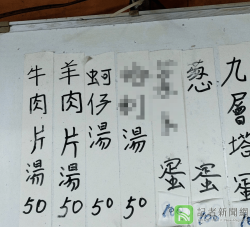 牛肉片湯 50
羊肉片湯 50
蚵仔湯 50
湯 50
蛋
蔥蛋 100
九層塔蛋
記者新聞網